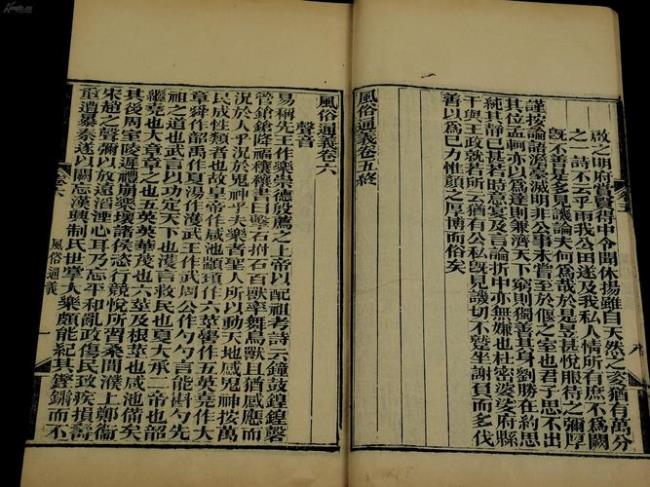 啟之明府賞賢得中令聞休揚雖自天然之亥猶有萬分
之一詩不云乎雨我公田遂及我私人情所有庶不為闕
既不善是多見譏論夫何為哉於是昱甚悅服待之彌厚
謹按論語澹臺滅明非公事未嘗至於偃之室也君子思不出
其位孟軻亦以為達則兼濟天下窮則獨善其身劉勝在約思
純其靜已甚若時意宴及言論折中亦無嫌也杜密婆婆府縣
干與王政就若所云猶有公私既見譏切不蹔坐謝負而多伐
善以為己力惟顏之厚博而俗矣
風俗通義卷五終
風俗通義卷六
聲音
易稱先王作樂崇德殷薦之上帝以配祖考詩云鐘鼓鍠鍠磬
管鎗鎗降福穰穰書曰擊石拊石百獸率舞鳥獸且猶感應而
況於人乎況於鬼神乎夫樂者聖人所以動天地感鬼神按萬
民成性類者也故黃帝作咸池顓頊作六莖嚳作五英堯作大
章舜作韶禹作夏湯作濩武王作武周公作勺勺言能斟勺先
祖之道也武言以功定天下也濩言救民也夏大承二帝也韶
繼堯也大章章之也五英英華茂也六莖及根莖也咸池備矣
其後周室陵遲禮崩樂壞諸侯恣行競悅所習桑間濮上鄭衛
宋趙之聲彌以放遠滔湮心耳乃忘平和亂政傷民致疾損壽
重遭暴秦遂以闕忘漢興制氏世掌大樂頗能紀其鏗鏘而不
卷六
風俗通義